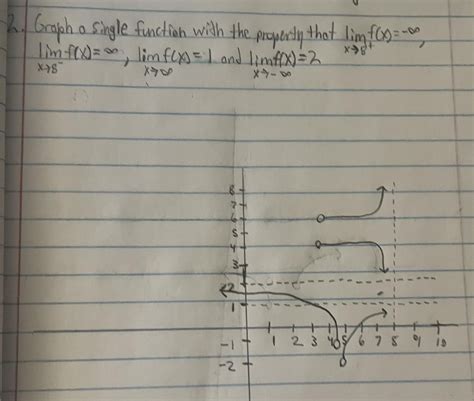 2. Graph a single function with the property that lim f(x)=-∞,
x→8⁺
lim f(x)=∞, lim f(x)=1 and lim f(x)=2
x→8⁻ x→∞ x→-∞
8
7
6
5
4
3
2
1
1 2 3 4 5 6 7 8 9 10
-1
-2